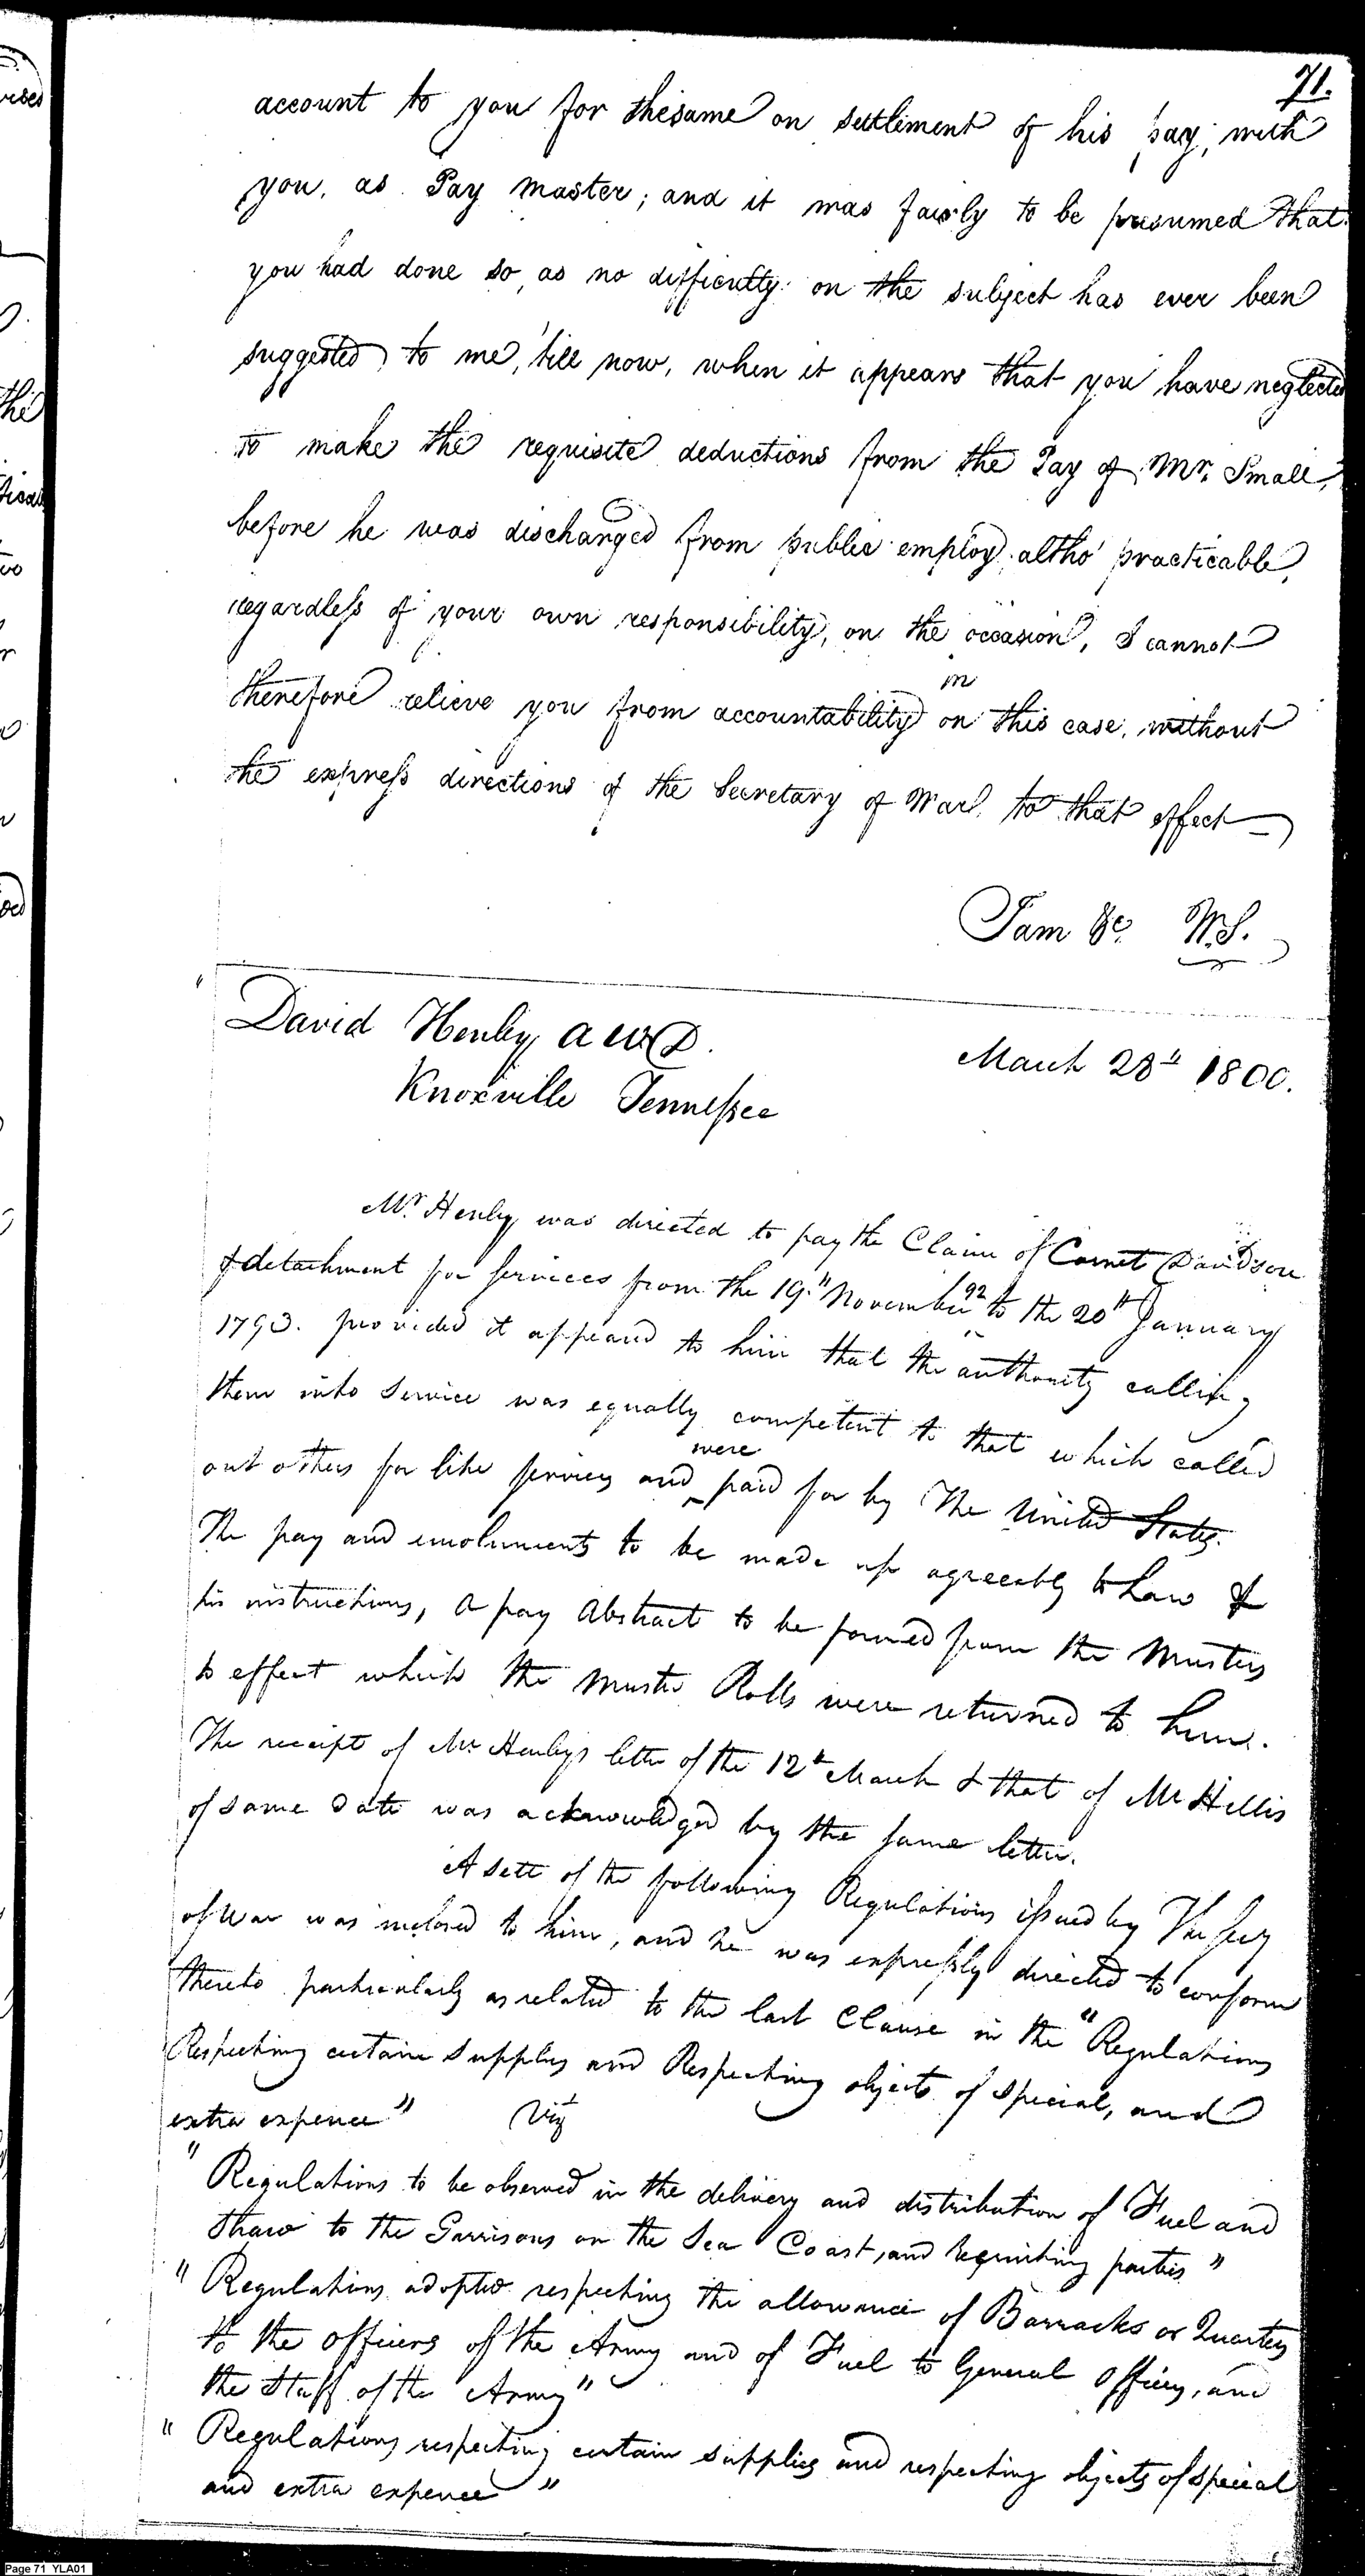 71.
account to you for thesame on settlement of his pay, with
you, as Pay Master; and it was fairly to be presumed that
you had done so, as no difficulty on the subject has ever been
suggested to me, 'till now, when it appears that you have neglected
to make the requisite deductions from the Pay of Mr. Small,
before he was discharged from public employ, altho' practicable,
regardless of your own responsibility, on the occasion, I cannot
in
therefore relieve you from accountability on this case, without
the express directions of the Secretary of War to that effect
I am &c. W.S.
David Henley A W D.
March 28th 1800.
Knoxville Tennessee
Mr. Henley was directed to pay the Claim of Cornet Davidson
& detachment for services from the 19th November 92 to the 20th January
1793. provided it appeared to him that the authority calling
them into Service was equally competent to that which called
were
out others for like services and paid for by The United States.
The pay and emoluments to be made up agreeably to Law &
his instructions, a pay Abstract to be formed from the Musters
to effect which the Muster Rolls were returned to him.
The receipt of Mr. Henleys letter of the 12th March & that of Mr Hillis
of same date was acknowledged by the same letter.
A sett of the following Regulations issued by The Secy
of War was inclosed to him, and he was expressly directed to conform
thereto particularly as related to the last Clause in the "Regulations
Respecting certain supplies and Respecting objects of special, and
extra expence" Viz
"Regulations to be observed in the delivery and distribution of Fuel and
Straw to the Garrisons on the Sea Coast, and recruiting parties"
"Regulations adopted respecting the allowance of Barracks or Quarters
to the officers of the Army and of Fuel to General Officers, and
the Staff of the Army"
"Regulations respecting certain supplies and respecting objects of special
and extra expence"
Page 71 YLA01